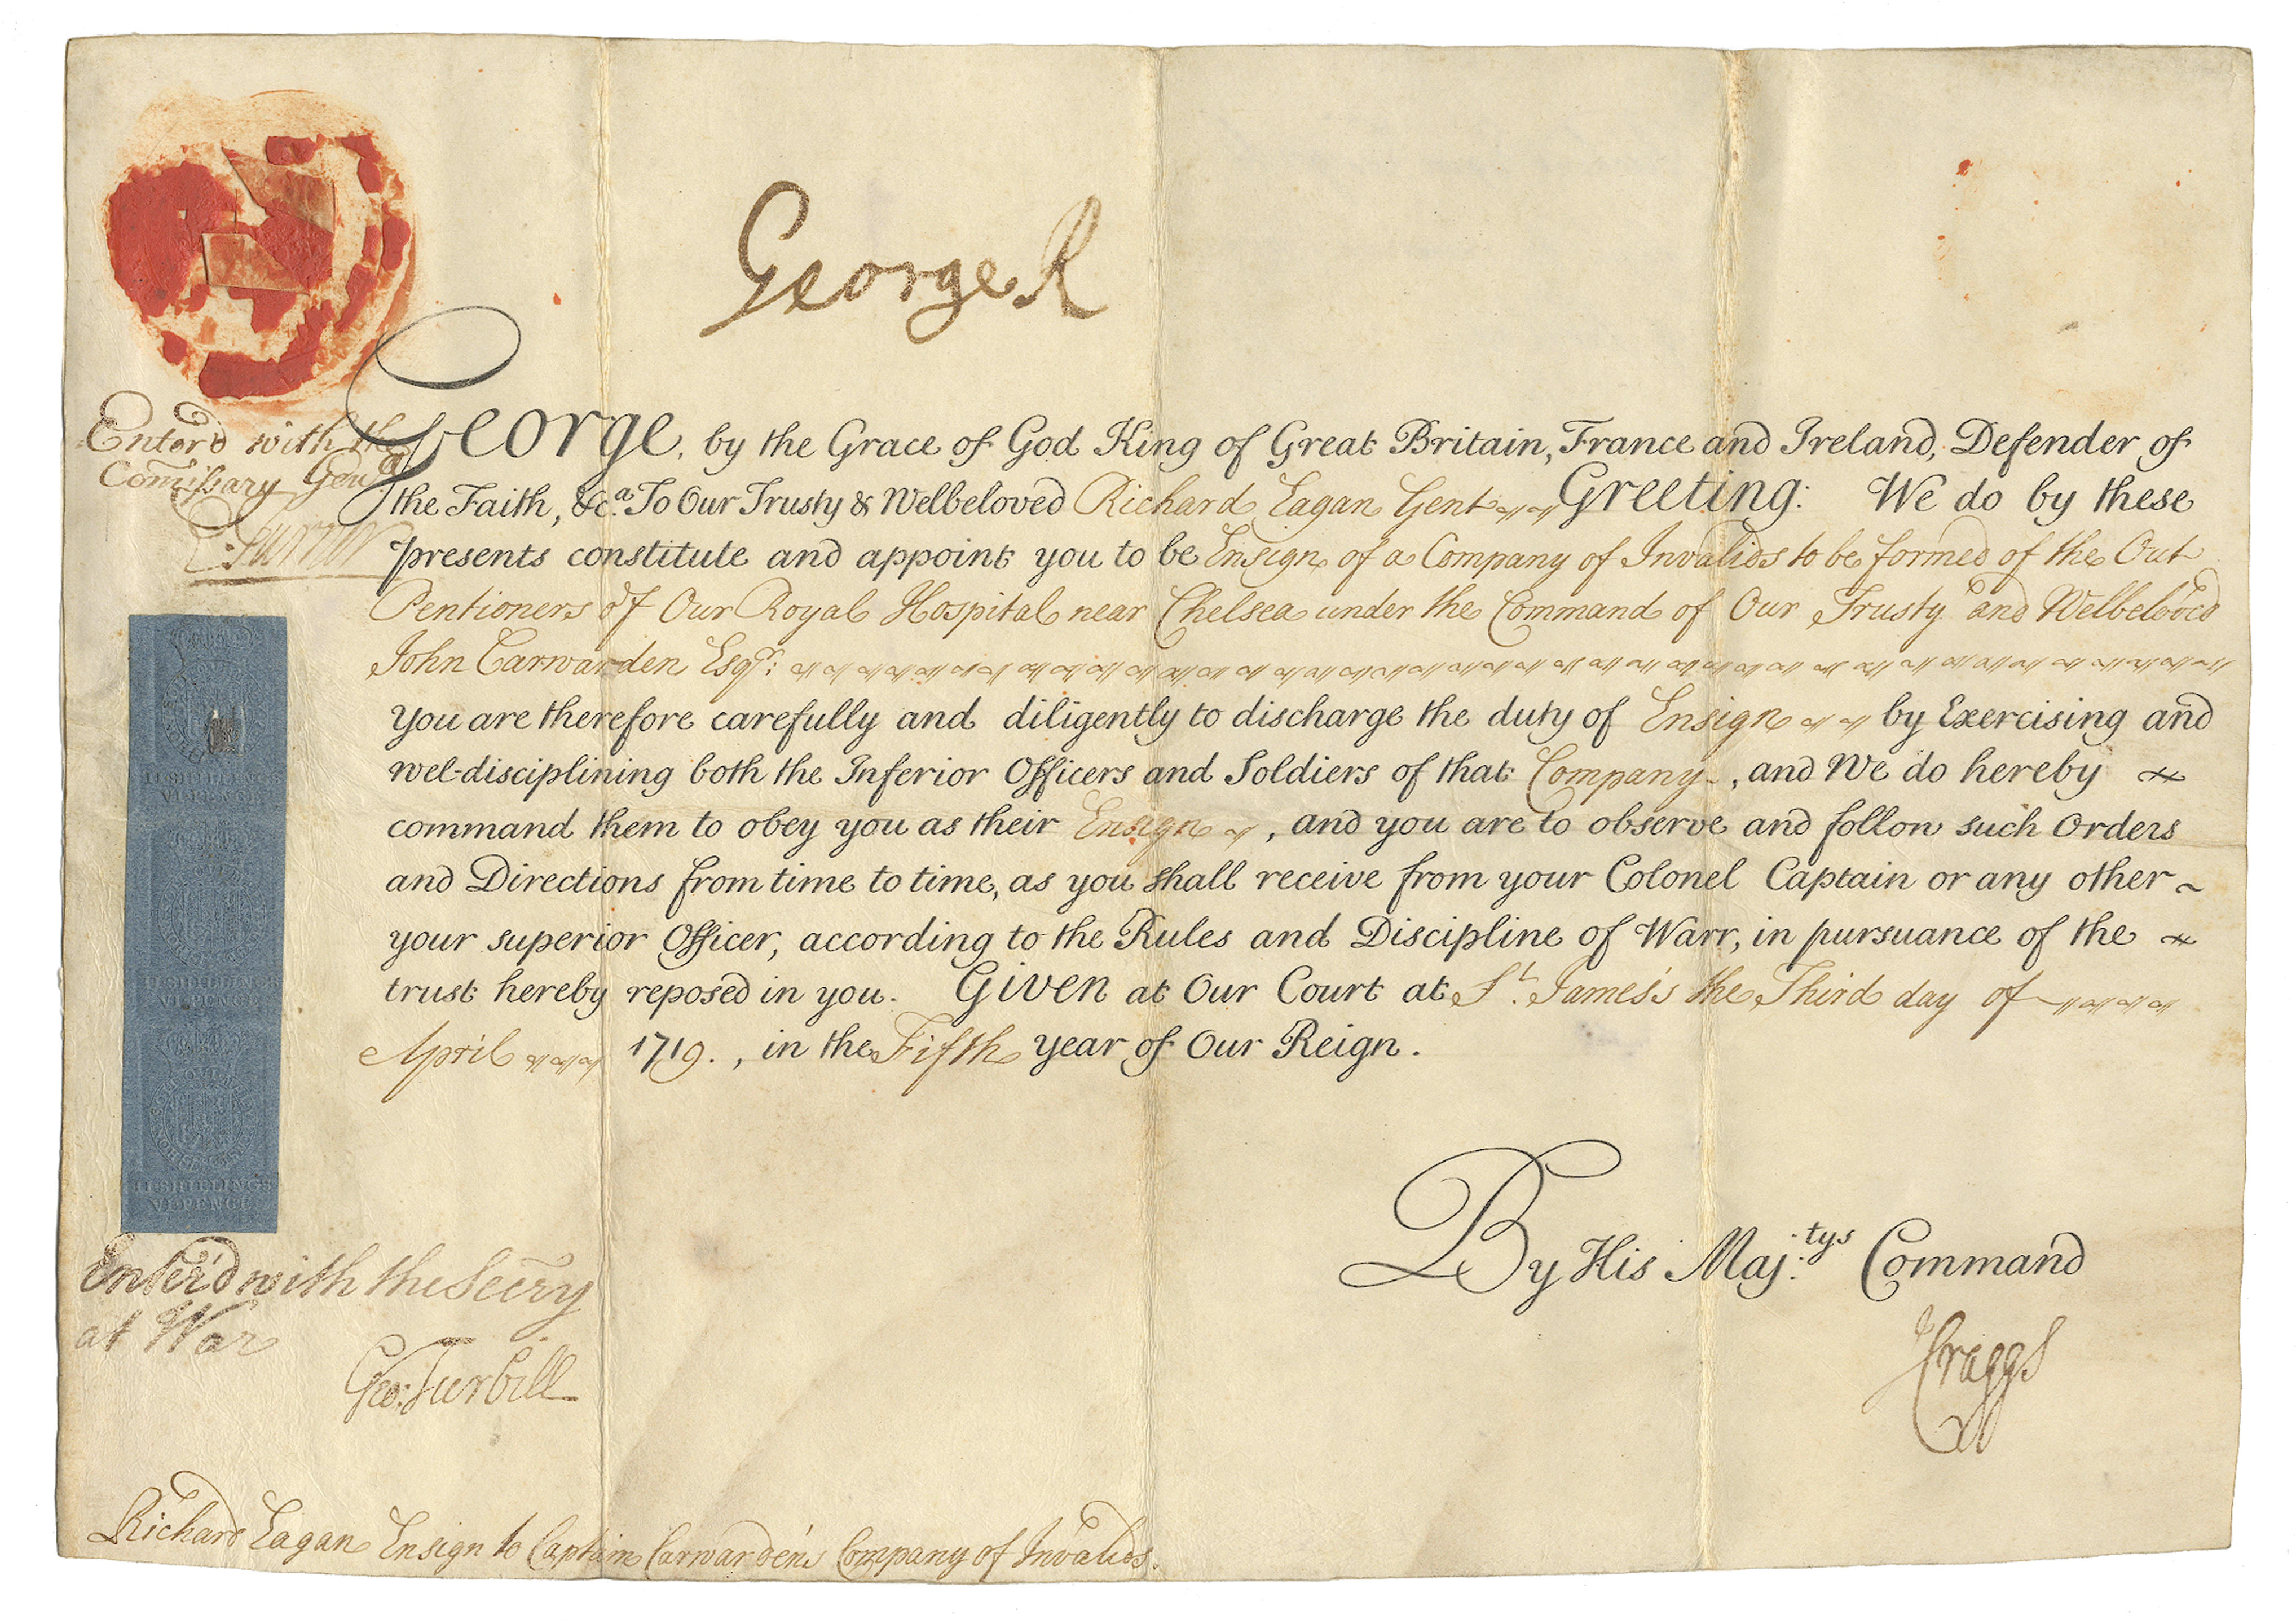 George R
Enter'd with the
Comissary Gen.ll
George, by the Grace of God King of Great Britain, France and Ireland, Defender of
the Faith, &c.a To Our Trusty & Welbeloved Richard Eagan Gent Greeting: We do by these
presents constitute and appoint you to be Ensign of a Company of Invalids to be formed of the Out
Pentioners of Our Royal Hospital near Chelsea under the Command of Our Trusty and Welbeloved
John Carwarden Esqr:
You are therefore carefully and diligently to discharge the duty of Ensign by Exercising and
wel-disciplining both the Inferior Officers and Soldiers of that Company, and We do hereby
command them to obey you as their Ensign, and you are to observe and follow such Orders
and Directions from time to time, as you shall receive from your Colonel Captain or any other
your superior Officer, according to the Rules and Discipline of Warr, in pursuance of the
trust hereby reposed in you. Given at Our Court at St. James's the Third day of
April 1719., in the Fifth year of Our Reign.
II SHILLINGS
VI PENCE
II SHILLINGS
VI PENCE
II SHILLINGS
VI PENCE
By His Maj:tys Command
J Craggs
Enter'd with the Secry
at War
Geo: Turbill
Richard Eagan Ensign to Captain Carwarden's Company of Invalids.